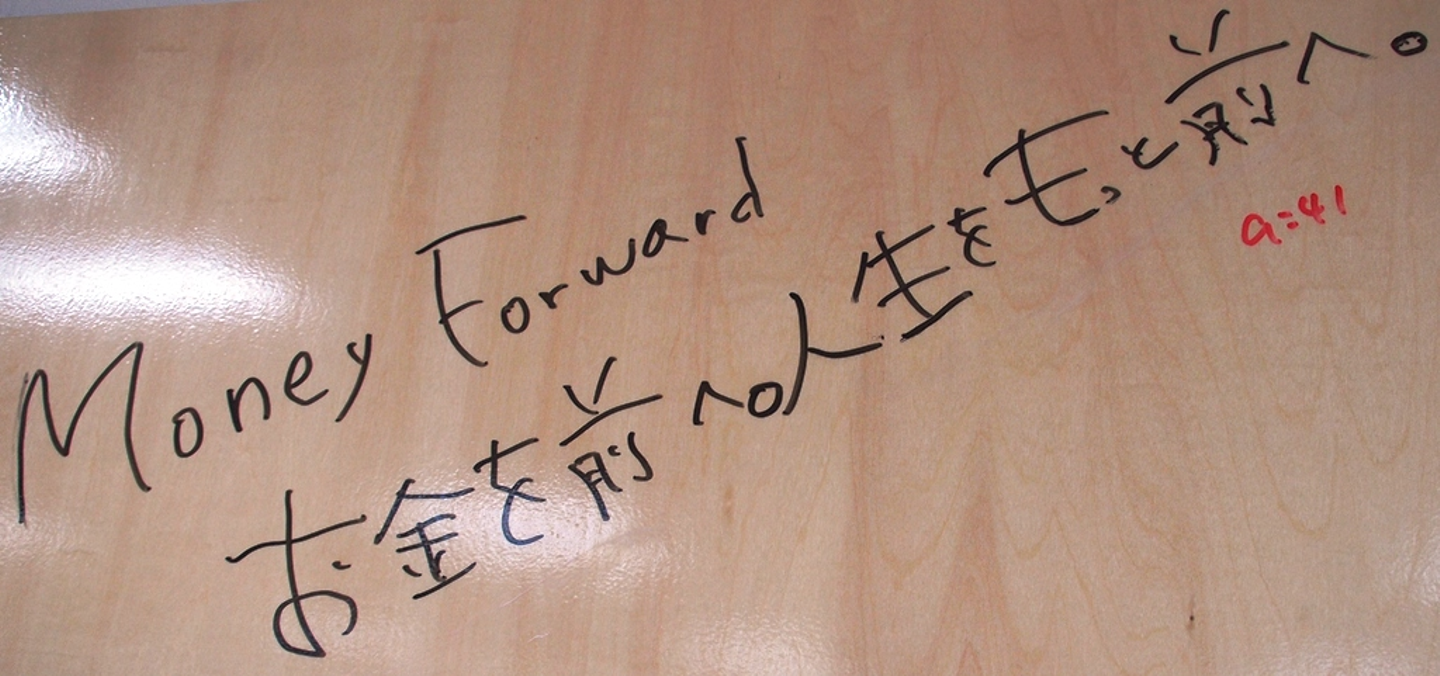 Money Forward
お金を前へ。人生をもっと前へ。
a=41